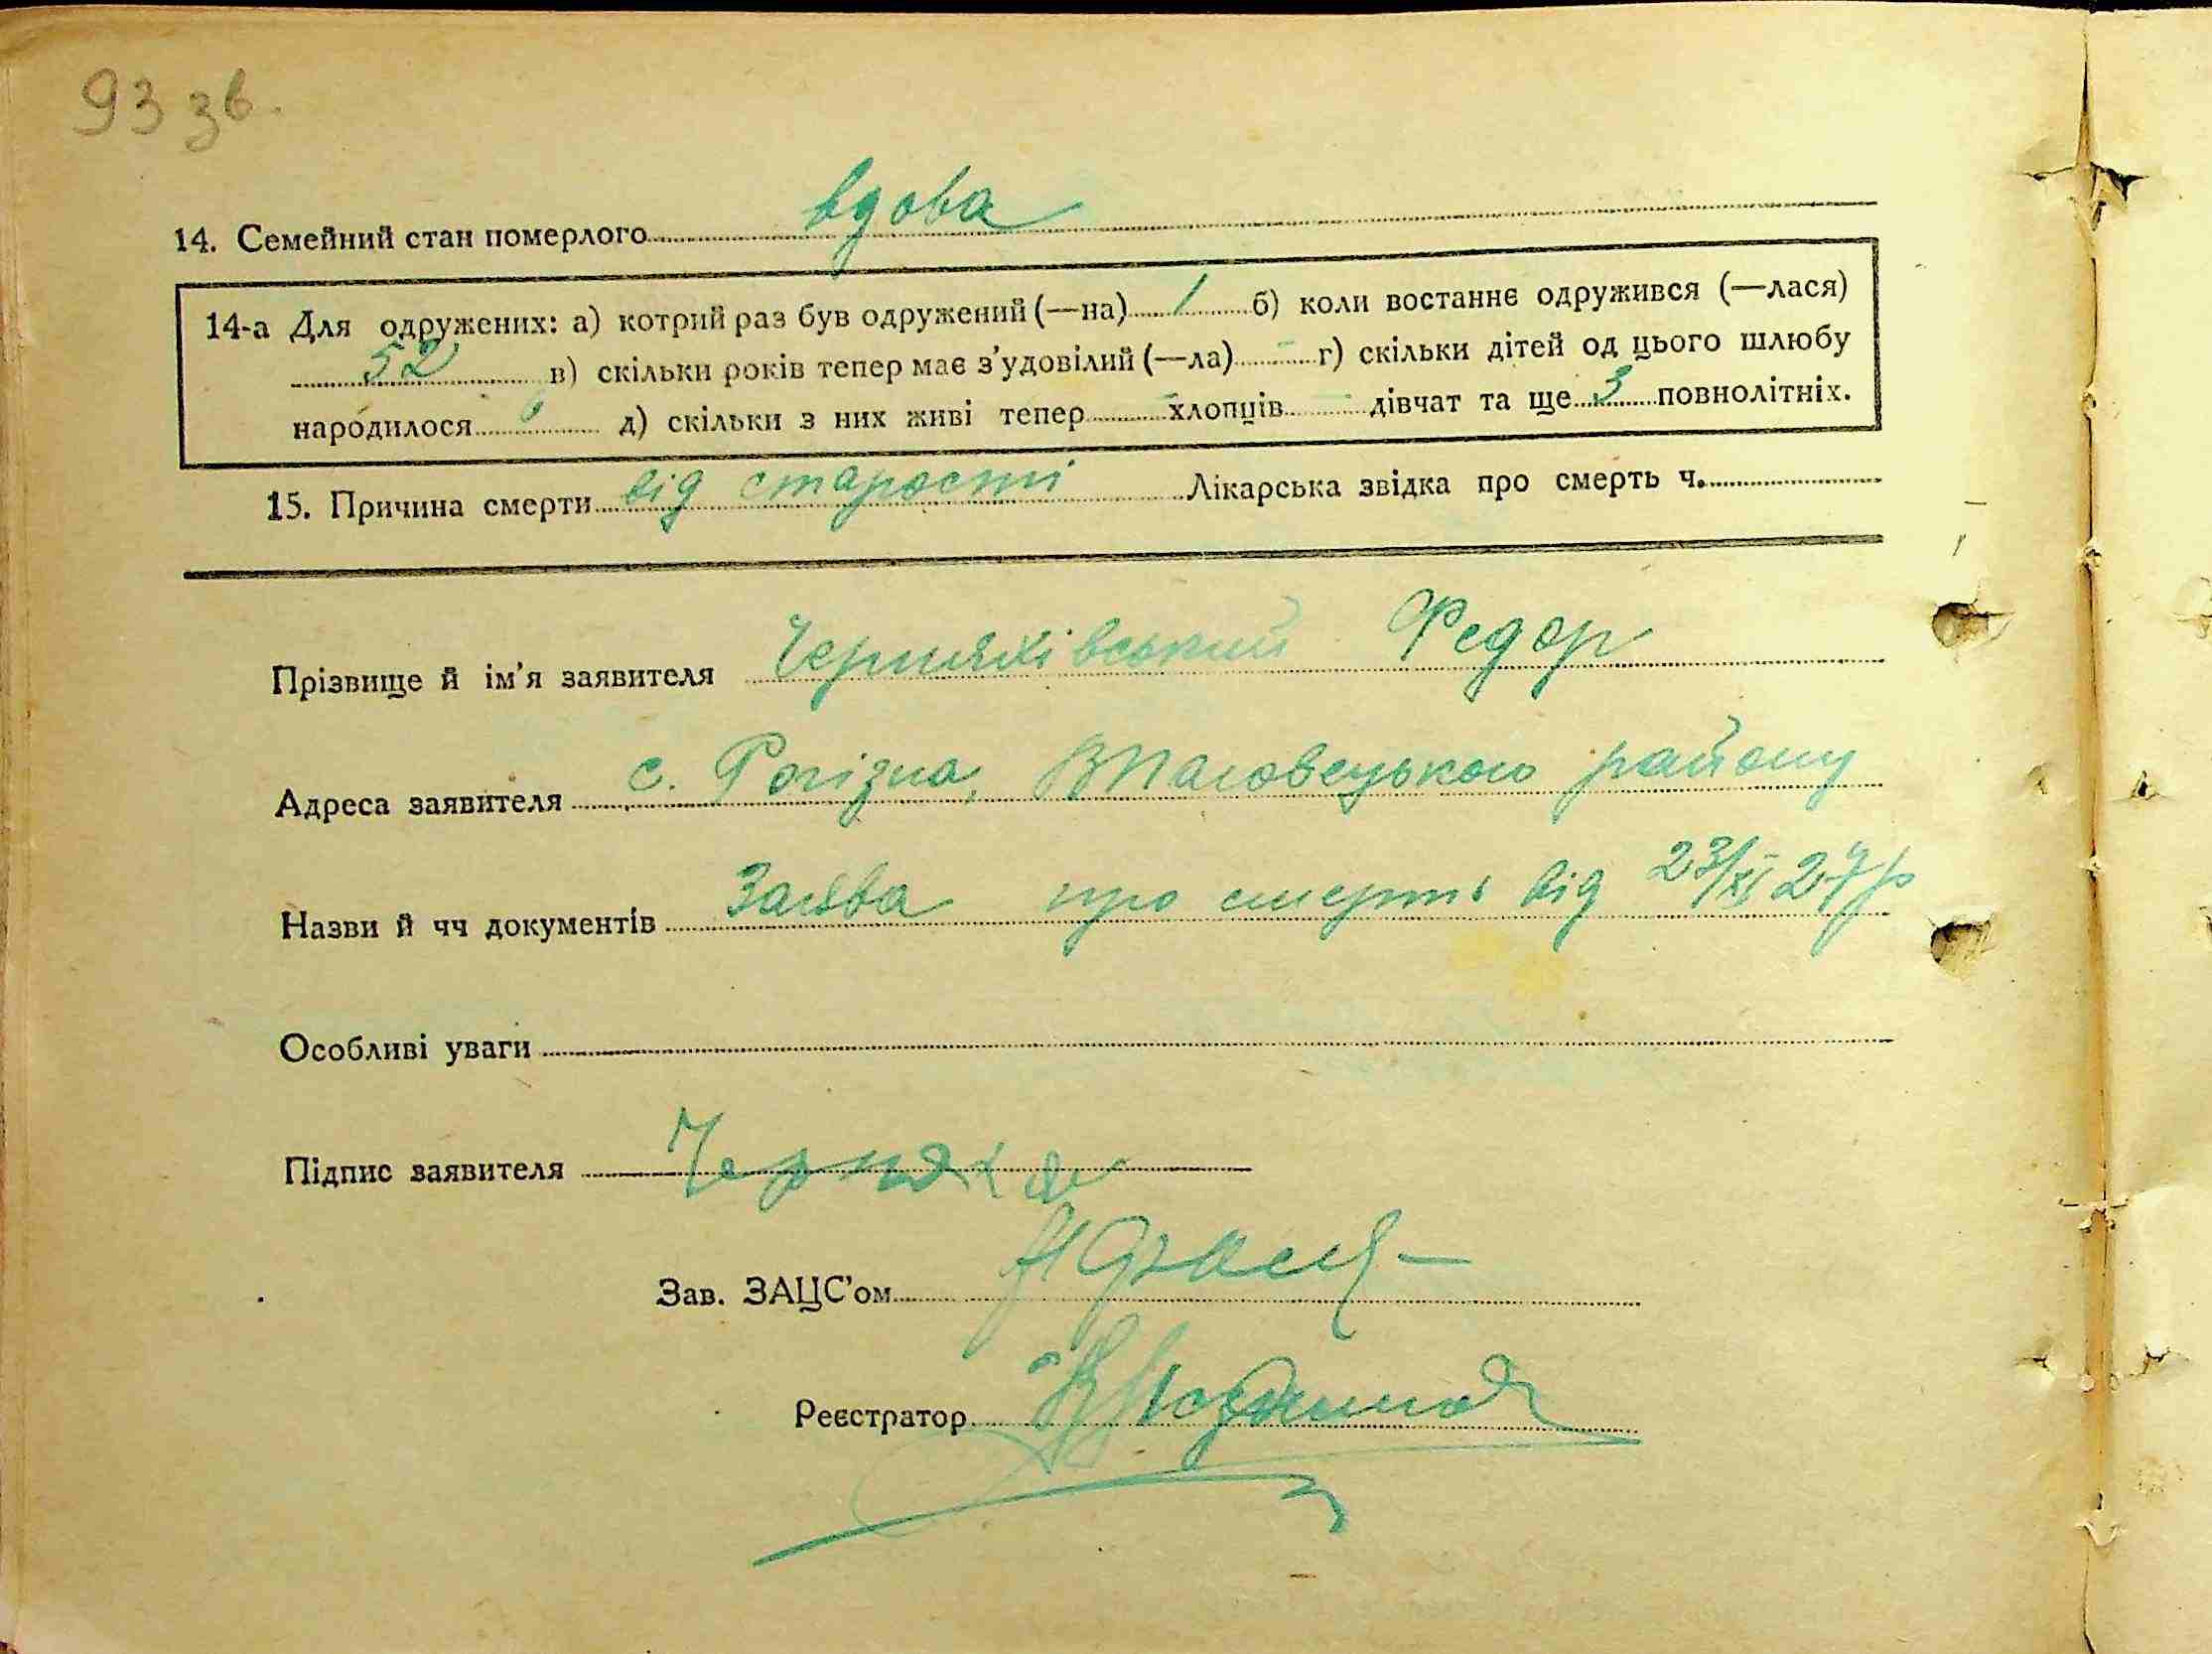 93 зв.
14. Семейний стан померлого вдова
14-а Для одружених: а) котрий раз був одружений (—на) 1 б) коли востаннє одружився (—лася)
52 в) скільки років тепер має з’удовілий (—ла) - г) скільки дітей од цього шлюбу
народилося д) скільки з них живі тепер - хлопців - дівчат та ще 3 повнолітніх.
15. Причина смерти від старости Лікарська звідка про смерть ч.
Прізвище й ім’я заявителя Черняхівський Федор
Адреса заявителя с. Рогізна, району
Назви й чч документів Заява про смерть від 23/XI 27р
Особливі уваги
Підпис заявителя Чернях
Зав. ЗАЦС’ом
Реєстратор